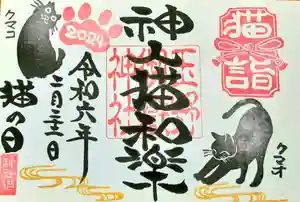 猫詣
神山猫和楽
2024
令和六年
二月二十二日
猫の日
クマコ
クマオ